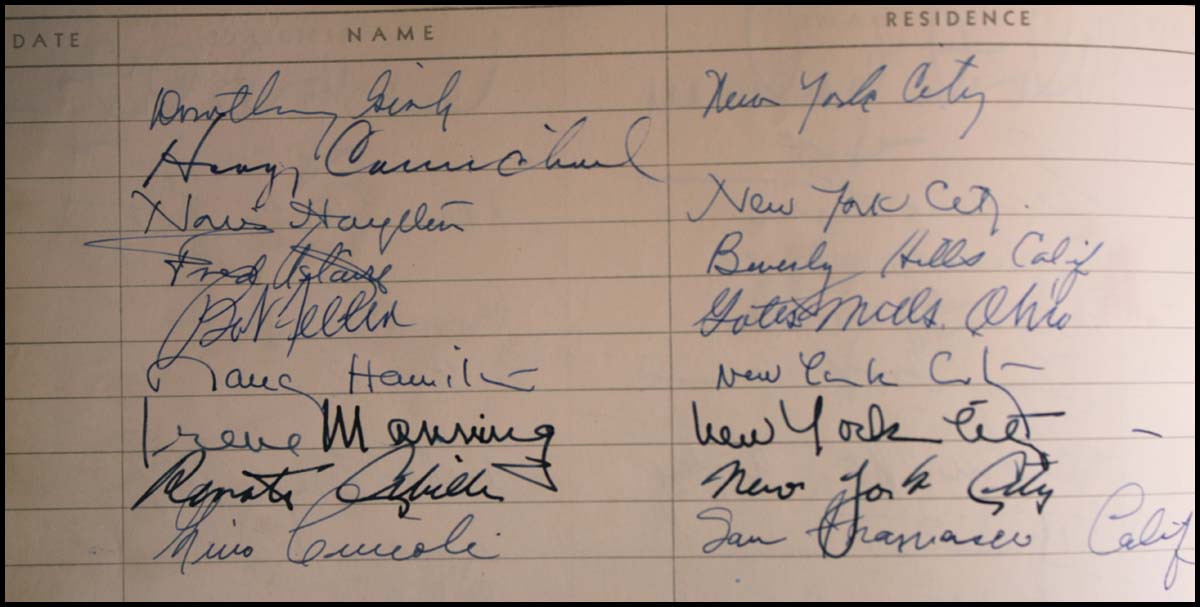 DATE NAME RESIDENCE
Dorothy Gish New York City
Hoagy Carmichael
Hayden New York City.
Fred Astaire Beverly Hills Calif
Bob Feller Gates Mills, Ohio
Nancy Hamilton New York City
Irene Manning New York City -
New York City
Nino San Francisco Calif